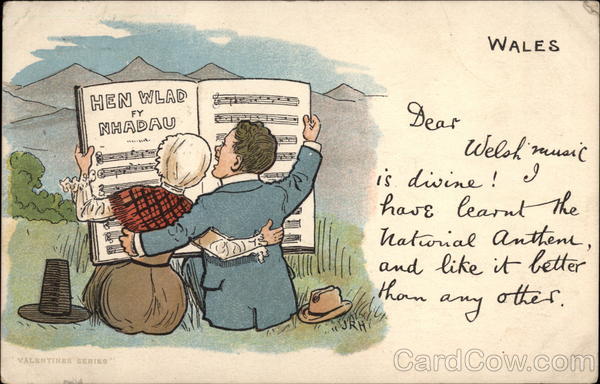 WALES
HEN WLAD
FY
NHADAU
Dear
Welsh music
is divine! I
have learnt the
National Anthem,
and like it better
than any other.
JRH
VALENTINES SERIES
CardCow.com